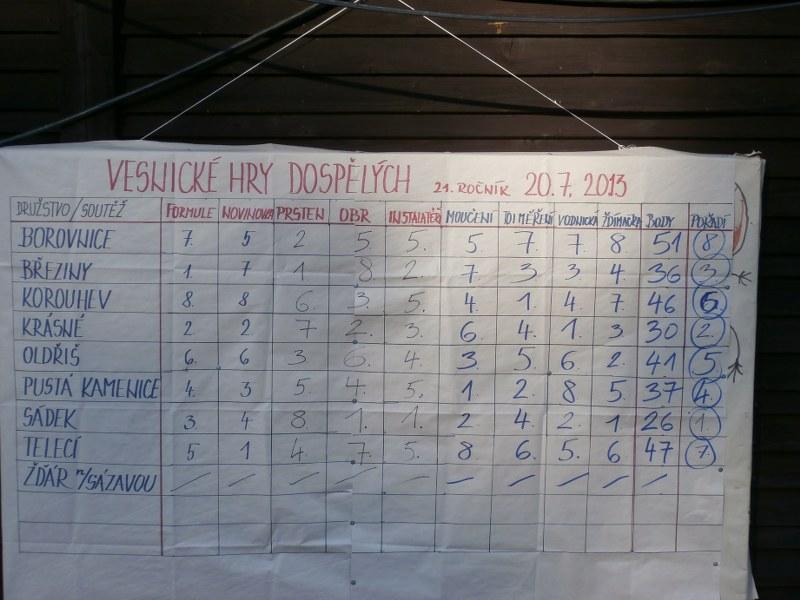 VESNICKÉ HRY DOSPĚLÝCH 21. ROČNÍK 20.7. 2013
DRUŽSTVO/SOUTĚŽ FORMULE NOVINOVKA PRSTEN OBR INSTALATÉŘI MOUČENÍ TOI MĚŘENÍ VODNICKÁ ŽDÍMAČKA BODY POŘADÍ
BOROVNICE 7. 5 2 5 5. 5 7. 7. 8 51 8
BŘEZINY 1 7 1 8 2. 7 3 3 4. 36 3
KOROUHEV 8. 8 6. 3. 5. 4. 1. 4 7. 46 6
KRÁSNÉ 2 2 7 2. 3. 6 4. 1. 3. 30 2.
OLDŘIŠ 6. 6 3. 6. 4. 3. 5 6 2. 41 5.
PUSTÁ KAMENICE 4. 3 5. 4. 5. 1 2. 8 5. 37 4.
SÁDEK 3. 4 8 1. 1. 2 4 2. 1 26 1.
TELECÍ 5 1 4. 7. 5. 8 6. 5. 6 47 7.
ŽĎÁR n/SÁZAVOU / / / / / / / / / /